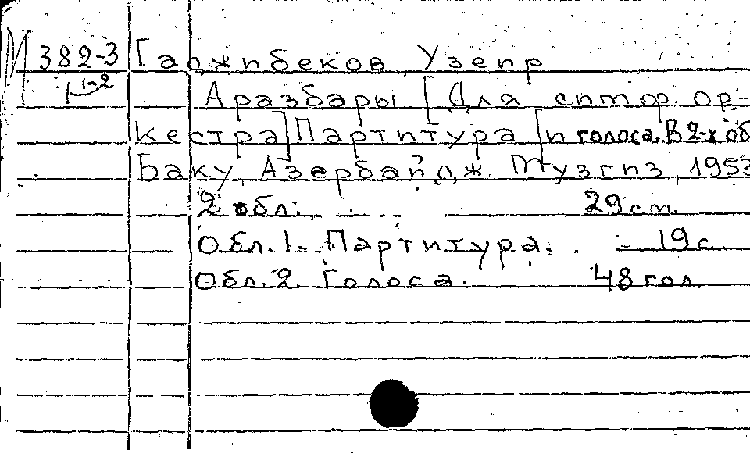 М 382-3 Гаджибеков Узеир
1-2 Аразбары [Для симф. ор-
кестра] Партитура [и голоса. В 2-х об
Баку, Азербайдж. Музгиз, 1953
2 обл. 29 см.
Обл. 1. Партитура. - 19 с.
Обл. 2. Голоса. 48 гол.